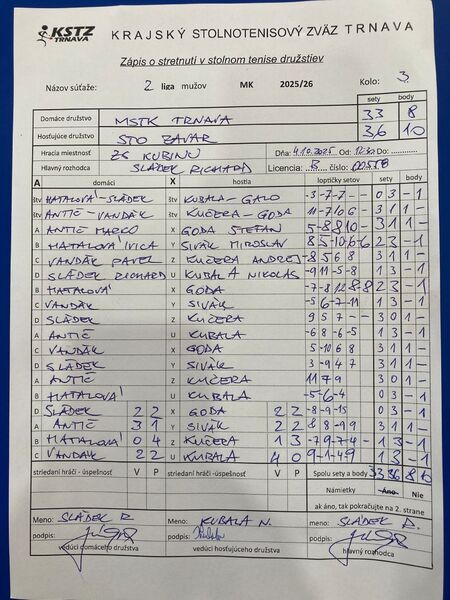 KSTZ TRNAVA KRAJSKÝ STOLNOTENISOVÝ ZVÄZ TRNAVA
Zápis o stretnutí v stolnom tenise družstiev
Názov súťaže: 2 liga mužov MK 2025/26 Kolo: 3
sety body
Domáce družstvo MSTK TRNAVA 33 8
Hosťujúce družstvo STO ZAVAR 36 10
Hracia miestnosť ZŠ KUBINU Dňa: 4.10.2025 Od: Do:
Hlavný rozhodca SLÁDEK RICHARD Licencia: B číslo: 00578
A domáci X hostia loptičky setov sety body
štv HATALOVÁ-SLÁDEK štv KUBALA-GALO -3-7-7-- 0 3 - 1
štv ANTIČ-VANDÁK štv KUČERA-GODA 11-7 6 6- 3 1 1 -
A ANTIČ MARCO X GODA ŠTEFAN 5-8 8 10- 3 1 1 -
B HATALOVÁ IVICA Y SIVÁK MIROSLAV 8 5-10-6-6 2 3 - 1
C VANDÁK PAVEL Z KUČERA ANDREJ -8 5 6 8 3 1 1 -
D SLÁDEK RICHARD U KUBALA NIKOLAS -9 11-5-8 1 3 - 1
B HATALOVÁ X GODA -7-8 12 8-8 2 3 - 1
C VANDÁK Y SIVÁK -5 6-7-11 1 3 - 1
D SLÁDEK Z KUČERA 9 5 7 -- 3 0 1 -
A ANTIČ U KUBALA -6 8-6-5 1 3 - 1
C VANDÁK X GODA 5-10 6 8 3 1 1 -
D SLÁDEK Y SIVÁK 3-9 4 7 3 1 1 -
A ANTIČ Z KUČERA 11 7 9 3 0 1 -
B HATALOVÁ U KUBALA -5-6-4 0 3 - 1
D SLÁDEK 2 2 X GODA 2 2 -8-9-15 0 3 - 1
A ANTIČ 3 1 Y SIVÁK 2 2 8 8-9 9 3 1 1 -
B HATALOVÁ 0 4 Z KUČERA 1 3 -7 9-7-4 1 3 - 1
C VANDÁK 2 2 U KUBALA 4 0 9-1-4-9 1 3 - 1
striedaní hráči - úspešnosť V P striedaní hráči -úspešnosť V P Spolu sety a body 33 36 8 10
Námietky Áno Nie
ak áno, tak pokračujte na 2. strane
Meno: SLÁDEK R. Meno: KUBALA N. Meno: SLÁDEK R.
podpis: podpis: podpis:
vedúci domáceho družstva vedúci hosťujúceho družstva hlavný rozhodca